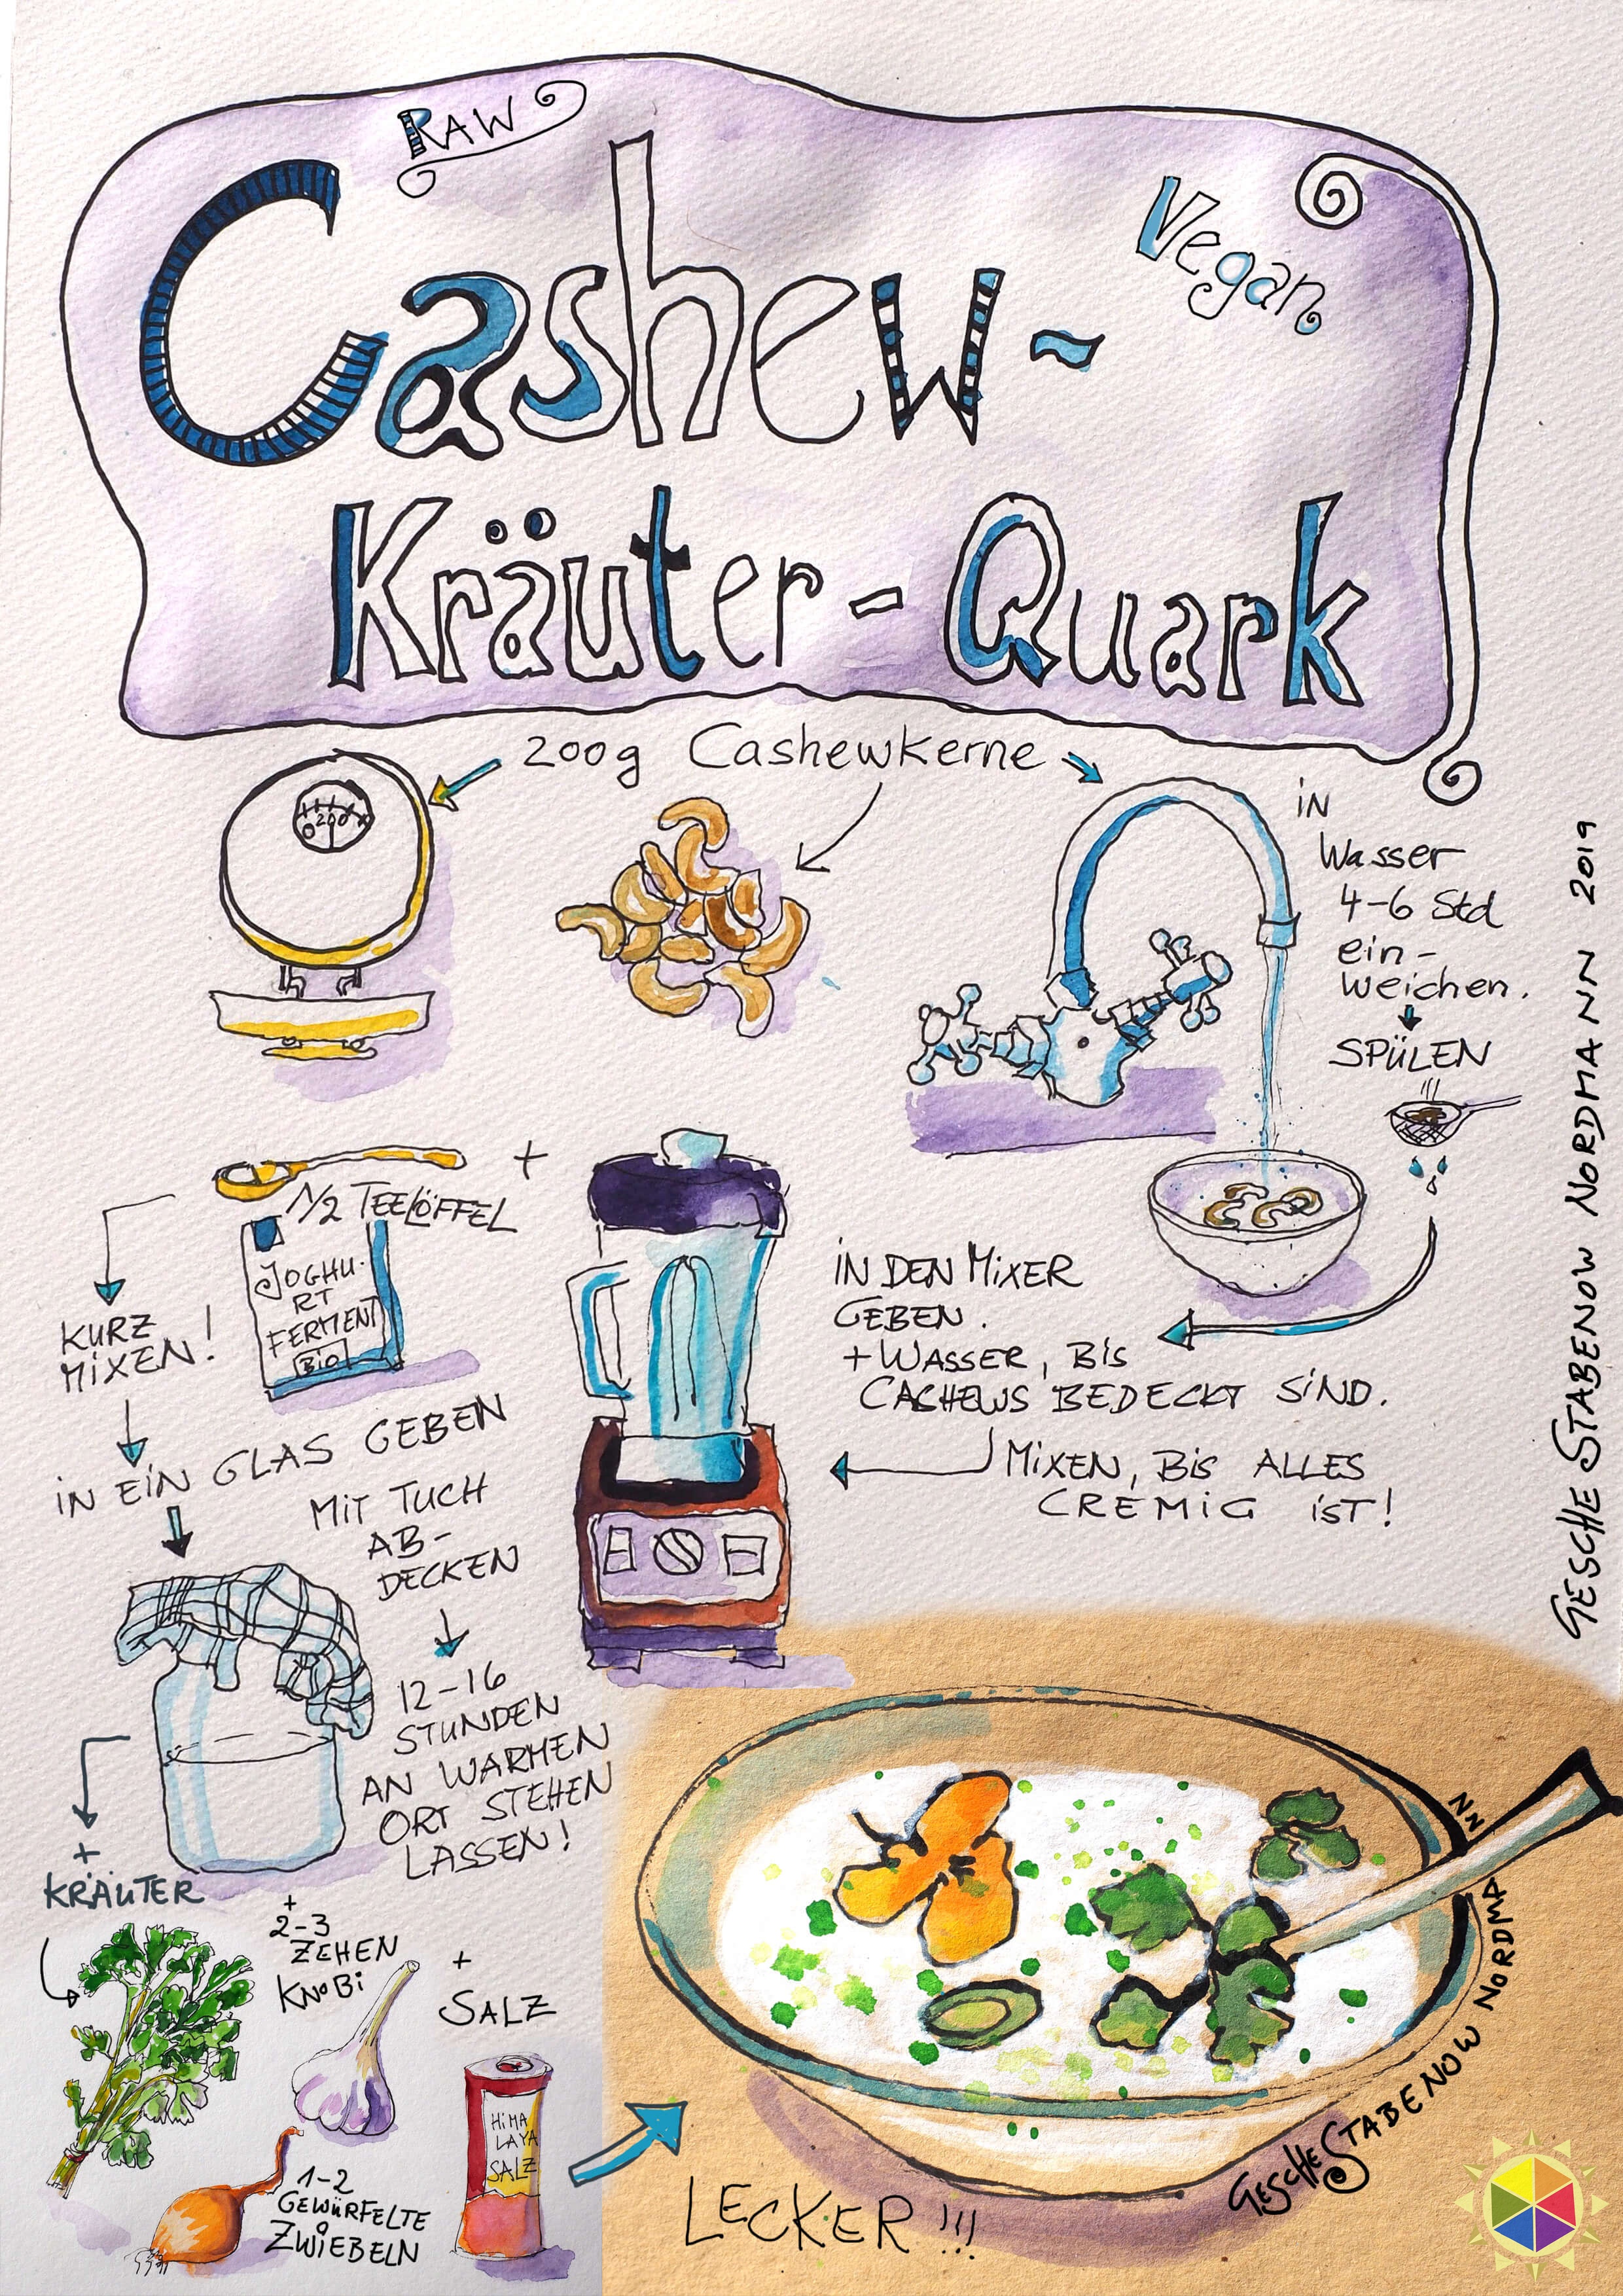 RAW
Vegan
Cashew-
Kräuter-Quark
200g Cashewkerne
0 200
in
Wasser
4-6 Std
ein-
weichen.
SPÜLEN
IN DEN MIXER
GEBEN.
+ WASSER, BIS
CASHEWS BEDECKT SIND.
MIXEN, BIS ALLES
CREMIG IST!
+
1/2 TEELÖFFEL
JOGHU-
RT
FERMENT
BIO
KURZ
MIXEN!
IN EIN GLAS GEBEN
MIT TUCH
AB-
DECKEN
12-16
STUNDEN
AN WARMEN
ORT STEHEN
LASSEN!
+
KRÄUTER
+
2-3
ZEHEN
KNOBI
+
SALZ
HIMA
LAYA
SALZ
1-2
GEWÜRFELTE
ZWIEBELN
LECKER!!!
GESCHE STABENOW NORDMANN
GESCHE STABENOW NORDMANN 2019